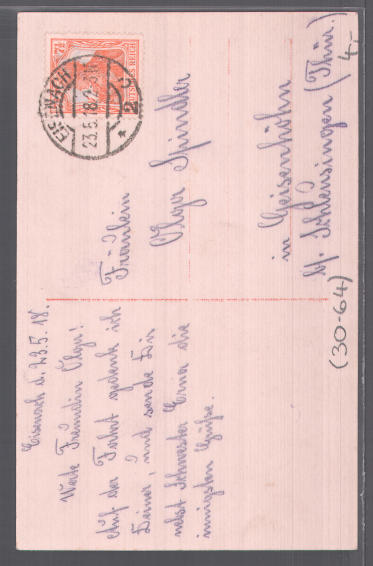 Eisenach d. 23.5.18.
Werte Freundin Olga!
Auf der Fahrt gedenk ich
Deiner, und sende Dir
nebst Schwester Erna die
innigsten Grüße.
Fräulein
Olga Spindler
in Geisenhöhn
b/ Schleusingen (Thür.)
7½
DEUTSCHES REICH
EISENACH
23.5.18.
* 2
4,-
(30-64)